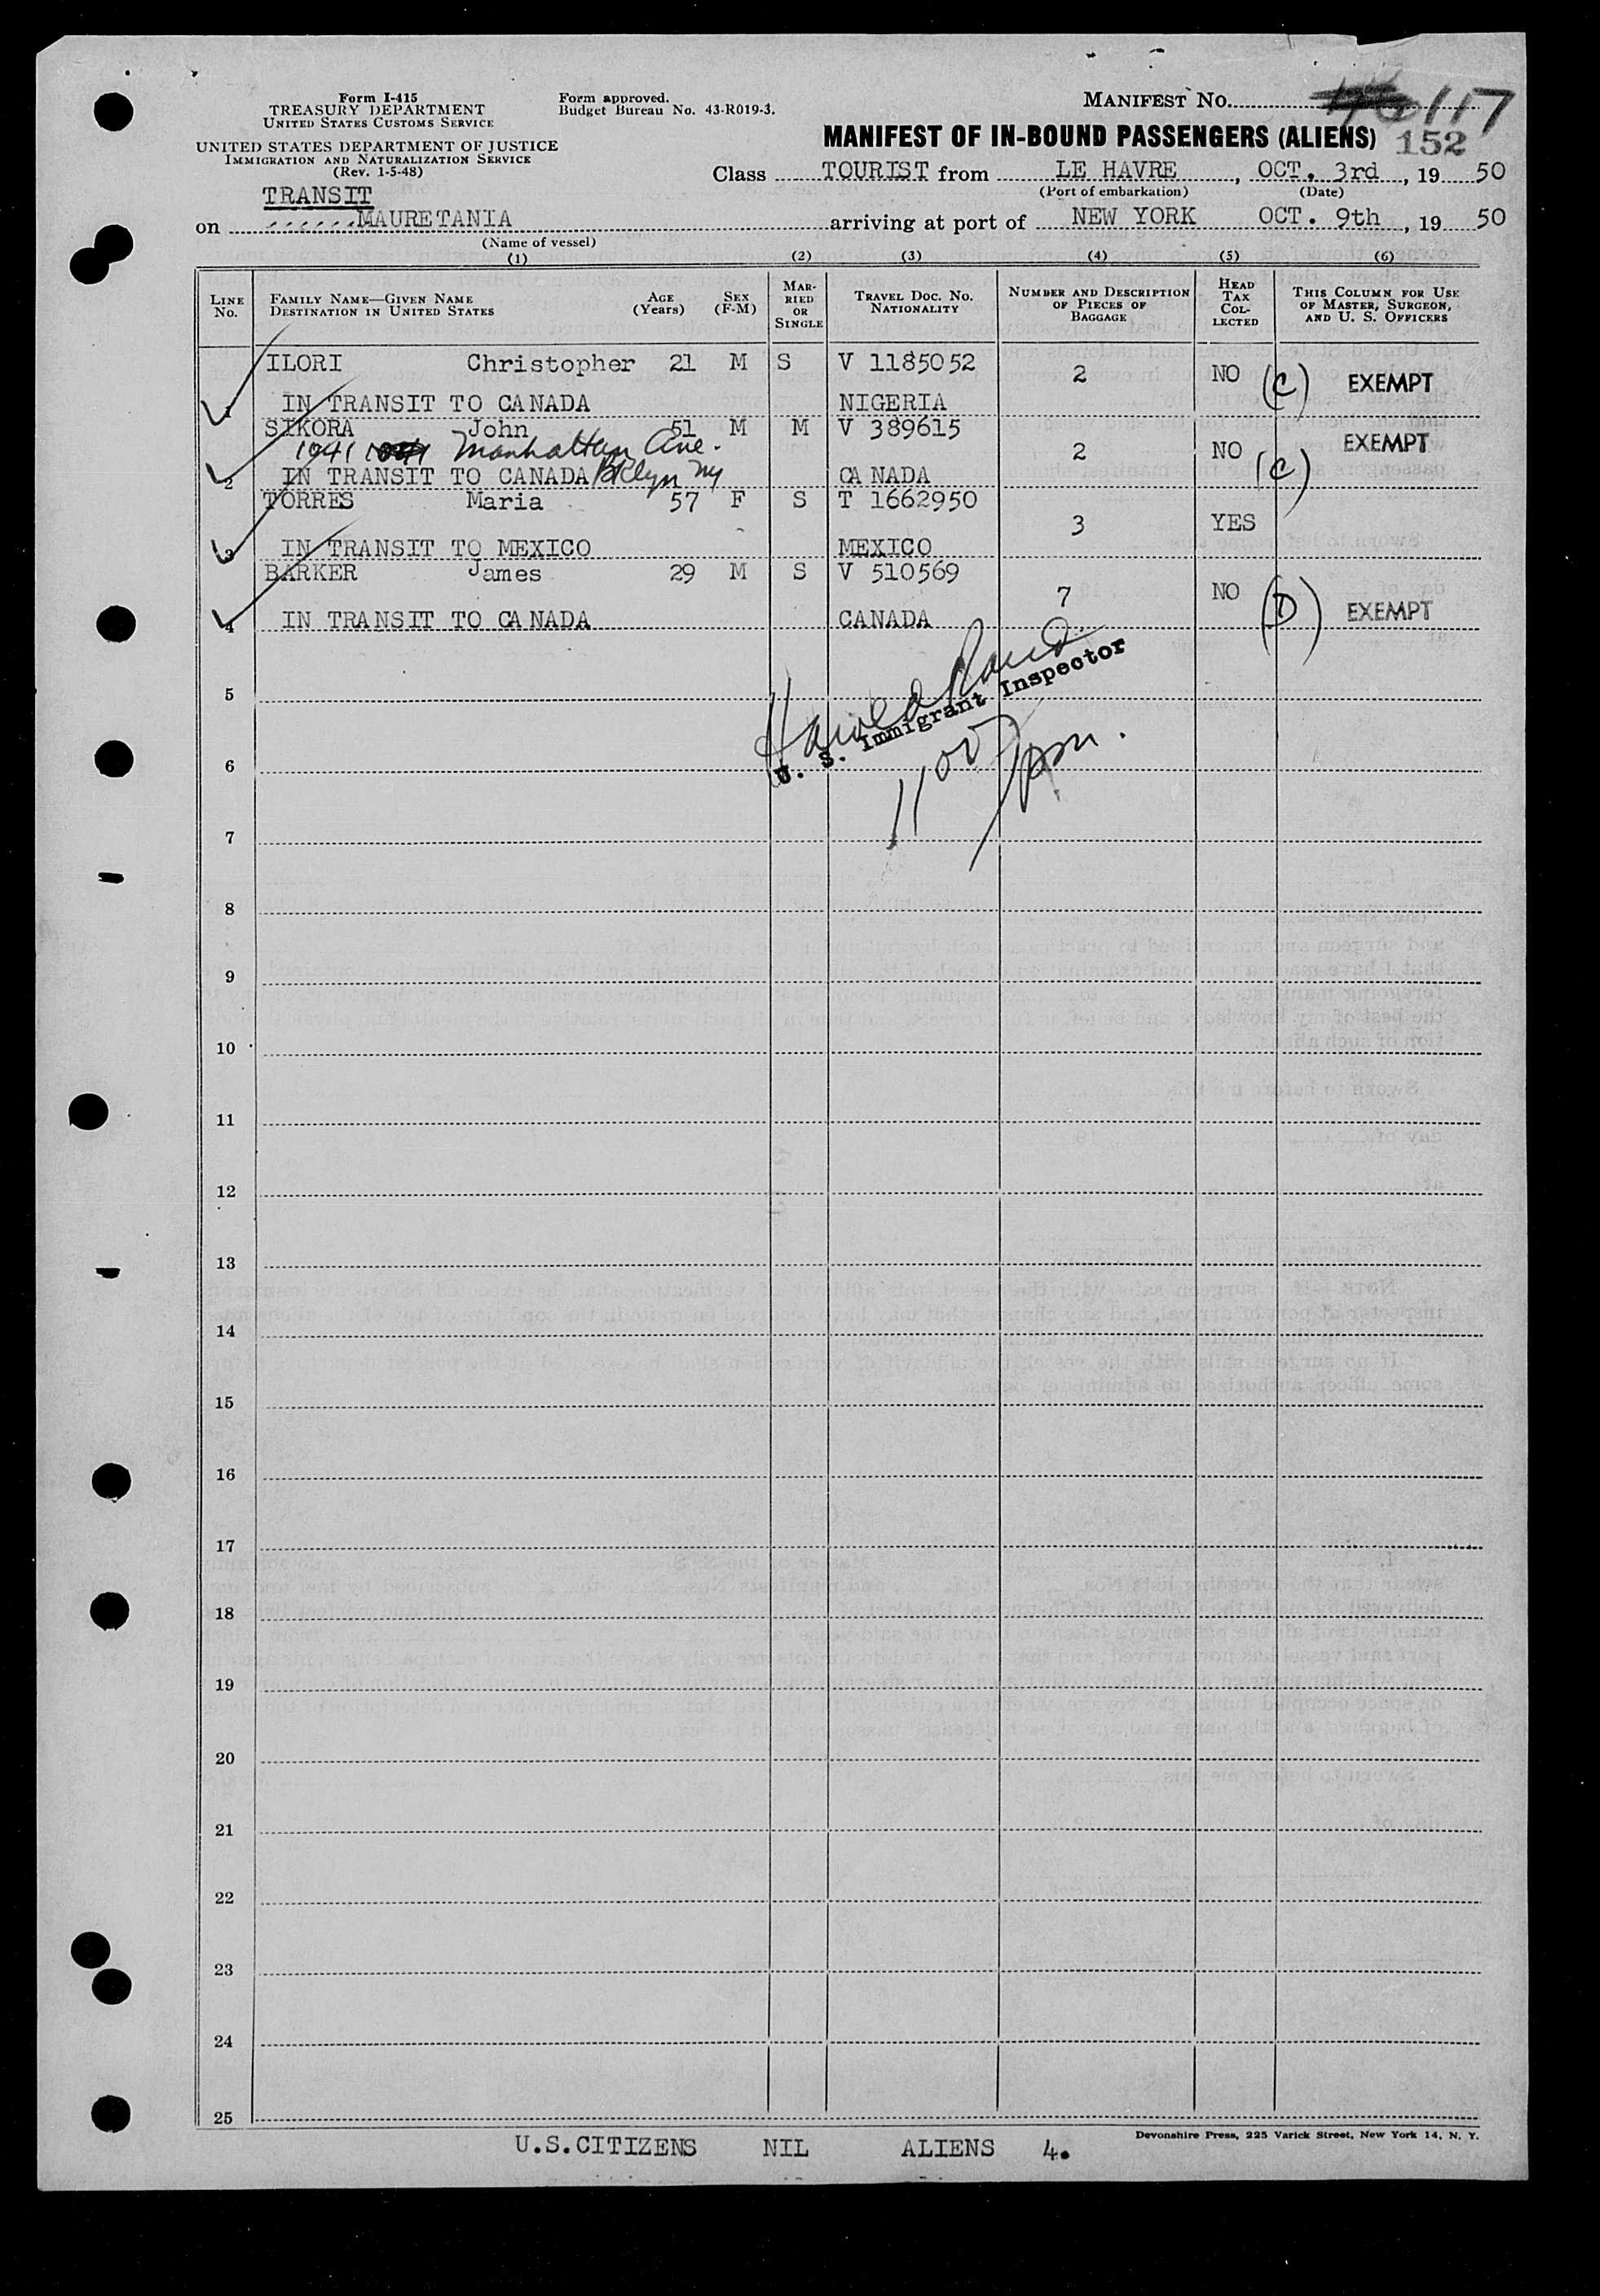 Form I-415
TREASURY DEPARTMENT
UNITED STATES CUSTOMS SERVICE
UNITED STATES DEPARTMENT OF JUSTICE
IMMIGRATION AND NATURALIZATION SERVICE
(Rev. 1-5-48)
Form approved.
Budget Bureau No. 43-R019-3.
MANIFEST NO. 117
MANIFEST OF IN-BOUND PASSENGERS (ALIENS) 152
Class TOURIST from LE HAVRE, OCT. 3rd, 19 50
(Port of embarkation) (Date)
TRANSIT
on MAURETANIA arriving at port of NEW YORK OCT. 9th, 19 50
(Name of vessel)
(1) (2) (3) (4) (5) (6)
LINE NO. FAMILY NAME—GIVEN NAME DESTINATION IN UNITED STATES AGE (YEARS) SEX (F-M) MARRIED OR SINGLE TRAVEL DOC. NO. NATIONALITY NUMBER AND DESCRIPTION OF PIECES OF BAGGAGE HEAD TAX COLLECTED THIS COLUMN FOR USE OF MASTER, SURGEON, AND U. S. OFFICERS
ILORI Christopher 21 M S V 1185052 2 NO (C) EXEMPT
1 IN TRANSIT TO CANADA NIGERIA
SIKORA John 51 M M V 389615 2 NO (C) EXEMPT
1041 Manhattan Ave.
2 IN TRANSIT TO CANADA Bklyn NY CANADA
TORRES Maria 57 F S T 1662950 3 YES
3 IN TRANSIT TO MEXICO MEXICO
BARKER James 29 M S V 510569 7 NO (D) EXEMPT
4 IN TRANSIT TO CANADA CANADA
U. S. Immigrant Inspector
1100 pm.
5
6
7
8
9
10
11
12
13
14
15
16
17
18
19
20
21
22
23
24
25
U.S.CITIZENS NIL ALIENS 4.
Devonshire Press, 225 Varick Street, New York 14, N. Y.